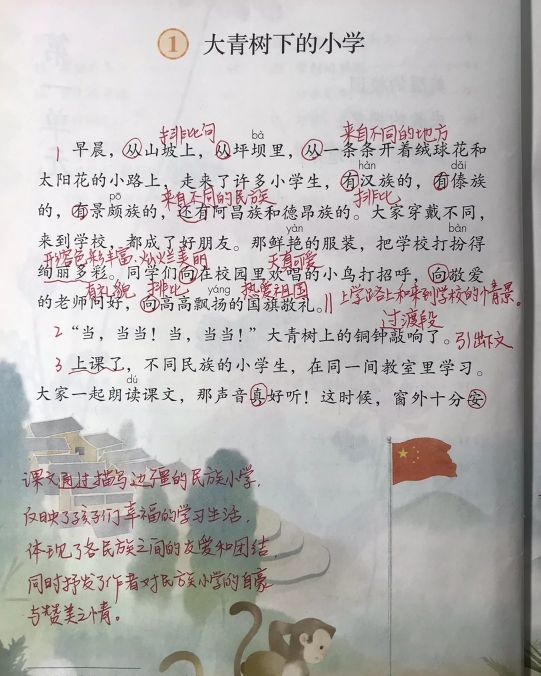 1 大青树下的小学
排比句 来自不同的地方
bà
1 早晨，从山坡上，从坪坝里，从一条条开着绒球花和
hàn dǎi
太阳花的小路上，走来了许多小学生，有汉族的，有傣族
pō 来自不同的民族 排比
的，有景颇族的，还有阿昌族和德昂族的。大家穿戴不同，
yàn
来到学校，都成了好朋友。那鲜艳的服装，把学校打扮得
形容色彩丰富、灿烂美丽 天真可爱
绚丽多彩。同学们向在校园里欢唱的小鸟打招呼，向敬爱
有礼貌 排比 yáng 热爱祖国
的老师问好，向高高飘扬的国旗敬礼。|| 上学路上和来到学校的情景。
过渡段
2 “当，当当！当，当当！”大青树上的铜钟敲响了。引出下文
3 上课了，不同民族的小学生，在同一间教室里学习。
dú
大家一起朗读课文，那声音真好听！这时候，窗外十分安
课文通过描写边疆的民族小学，
反映了孩子们幸福的学习生活，
体现了各民族之间的友爱和团结，
同时抒发了作者对民族小学的自豪
与赞美之情。